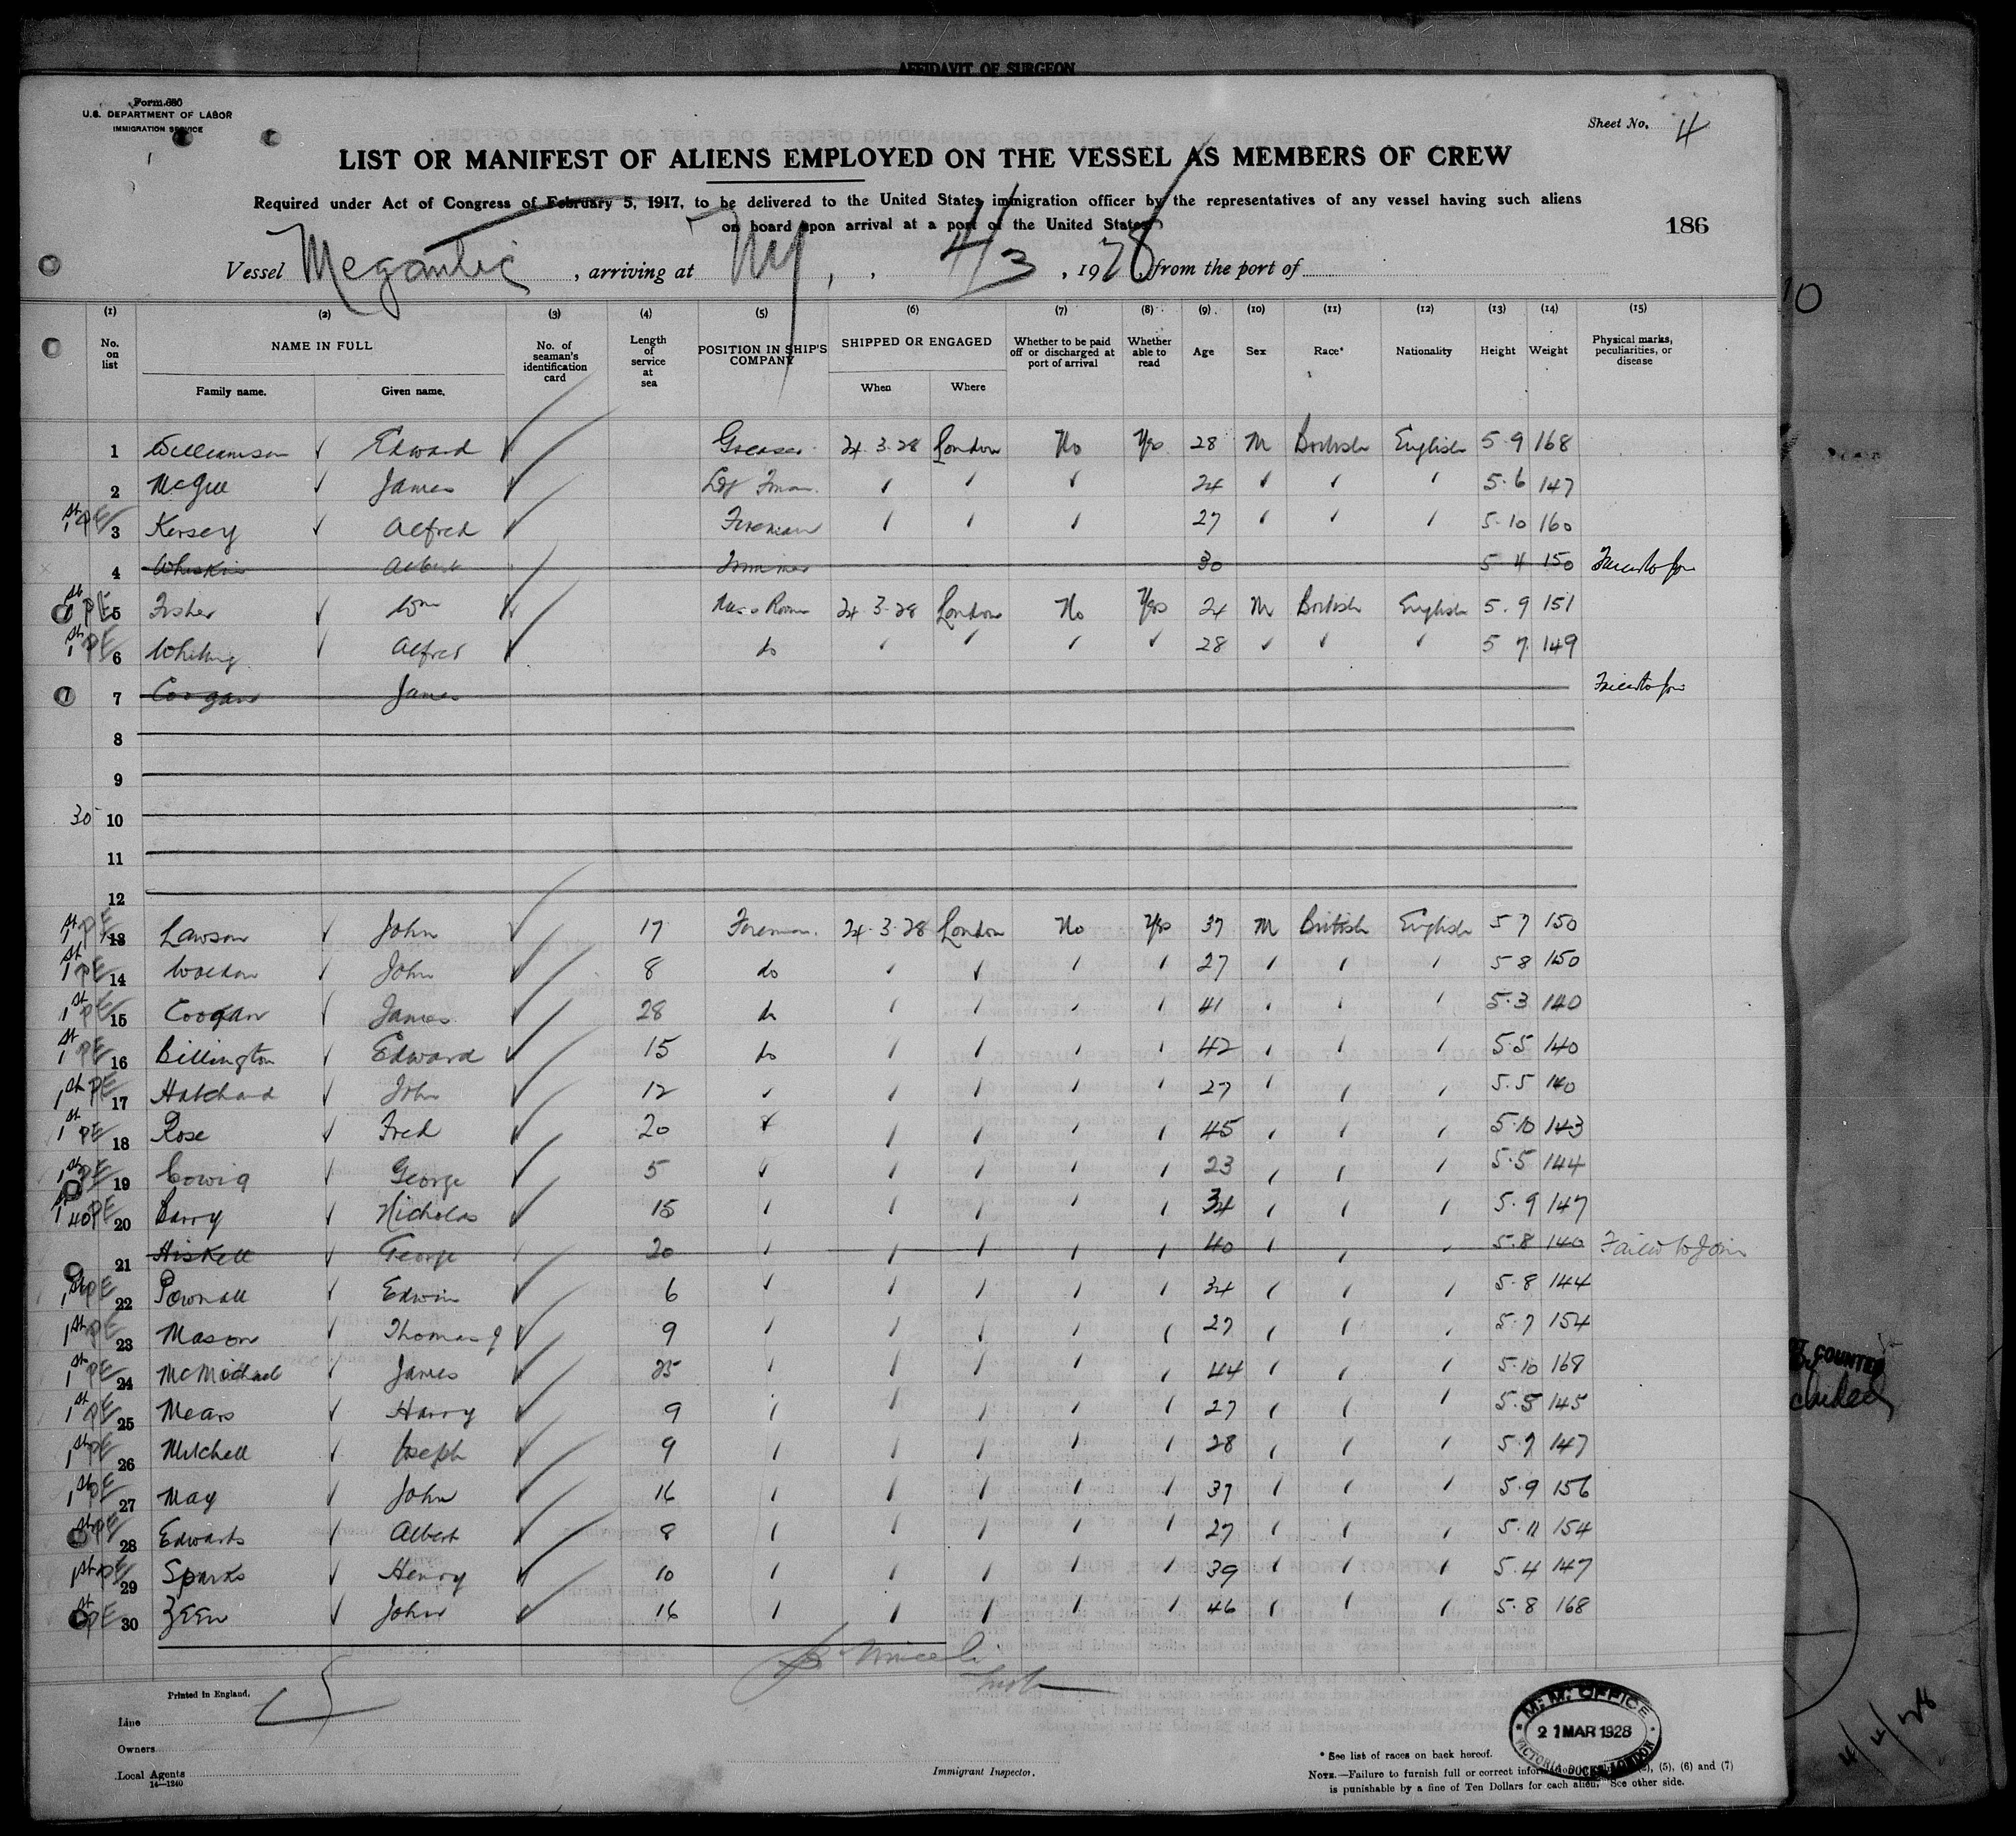 AFFIDAVIT OF SURGEON
Form 680
U.S. DEPARTMENT OF LABOR
IMMIGRATION SERVICE
Sheet No. 4
LIST OR MANIFEST OF ALIENS EMPLOYED ON THE VESSEL AS MEMBERS OF CREW
Required under Act of Congress of February 5, 1917, to be delivered to the United States immigration officer by the representatives of any vessel having such aliens
on board upon arrival at a port of the United States
186
Vessel Megantic, arriving at NY, 4/3, 1928, from the port of
(1) (2) (3) (4) (5) (6) (7) (8) (9) (10) (11) (12) (13) (14) (15)
No. on list NAME IN FULL Family name. Given name. No. of seaman's identification card Length of service at sea POSITION IN SHIP'S COMPANY SHIPPED OR ENGAGED When Where Whether to be paid off or discharged at port of arrival Whether able to read Age Sex Race* Nationality Height Weight Physical marks, peculiarities, or disease
1 Williamson Edward Greaser 24.3.28 London No Yes 28 M British English 5.9 168
2 McGill James 24 5.6 147
1st PE 3 Kersey Alfred Fireman 27 5.10 160
4 Albert Trimmer 30 5 4 150 Failed to Join
PE 5 Fisher Wm Mess Room 24 3.28 London No Yes 24 M British English 5.9 151
1st PE 6 Whiting Alfred do 28 5 7 149
7 Coogan James Failed to Join
8
9
30 10
11
12
1st PE 13 Lawson John 17 Fireman 24.3.28 London No Yes 37 M British English 5 7 150
1st PE 14 John 8 do 27 5 8 150
1st PE 15 Coogan James 28 do 41 5.3 140
1st PE 16 Billington Edward 15 do 42 5.5 140
1st PE 17 Hatchard John 12 27 5.5 140
1st PE 18 Rose Fred 20 45 5.10 143
1st PE 19 George 5 23 5.5 144
1st 40 PE 20 Barry Nicholas 15 34 5.9 147
21 Hiskett George 20 40 5.8 140 Failed to Join
1st PE 22 Pownall Edwin 6 34 5.8 144
1st PE 23 Mason Thomas J 9 27 5.7 154
1st PE 24 McMichael James 25 44 5.10 168
1st PE 25 Mears Harry 9 27 5.5 145
1st PE 26 Mitchell Joseph 9 28 5.7 147
1st PE 27 May John 16 37 5.9 156
1st PE 28 Edwards Albert 8 27 5.11 154
1st PE 29 Sparks Henry 10 39 5.4 147
1st PE 30 John 16 46 5.8 168
Printed in England.
Line
Owners
Local Agents
14—1240
Immigrant Inspector.
M. M. OFFICE
21 MAR 1928
VICTORIA DOCKS LONDON
* See list of races on back hereof.
NOTE.—Failure to furnish full or correct information (2), (5), (6) and (7)
is punishable by a fine of Ten Dollars for each alien. See other side.
COUNTED
4/4/28